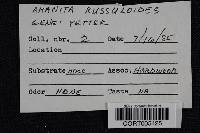 AMANITA RUSSULOIDES
GENE: YETTER
Coll. nbr. 2 Date 7/16/85
Location
Substrate Assoc. HARDWOOD
Odor NONE Taste NA